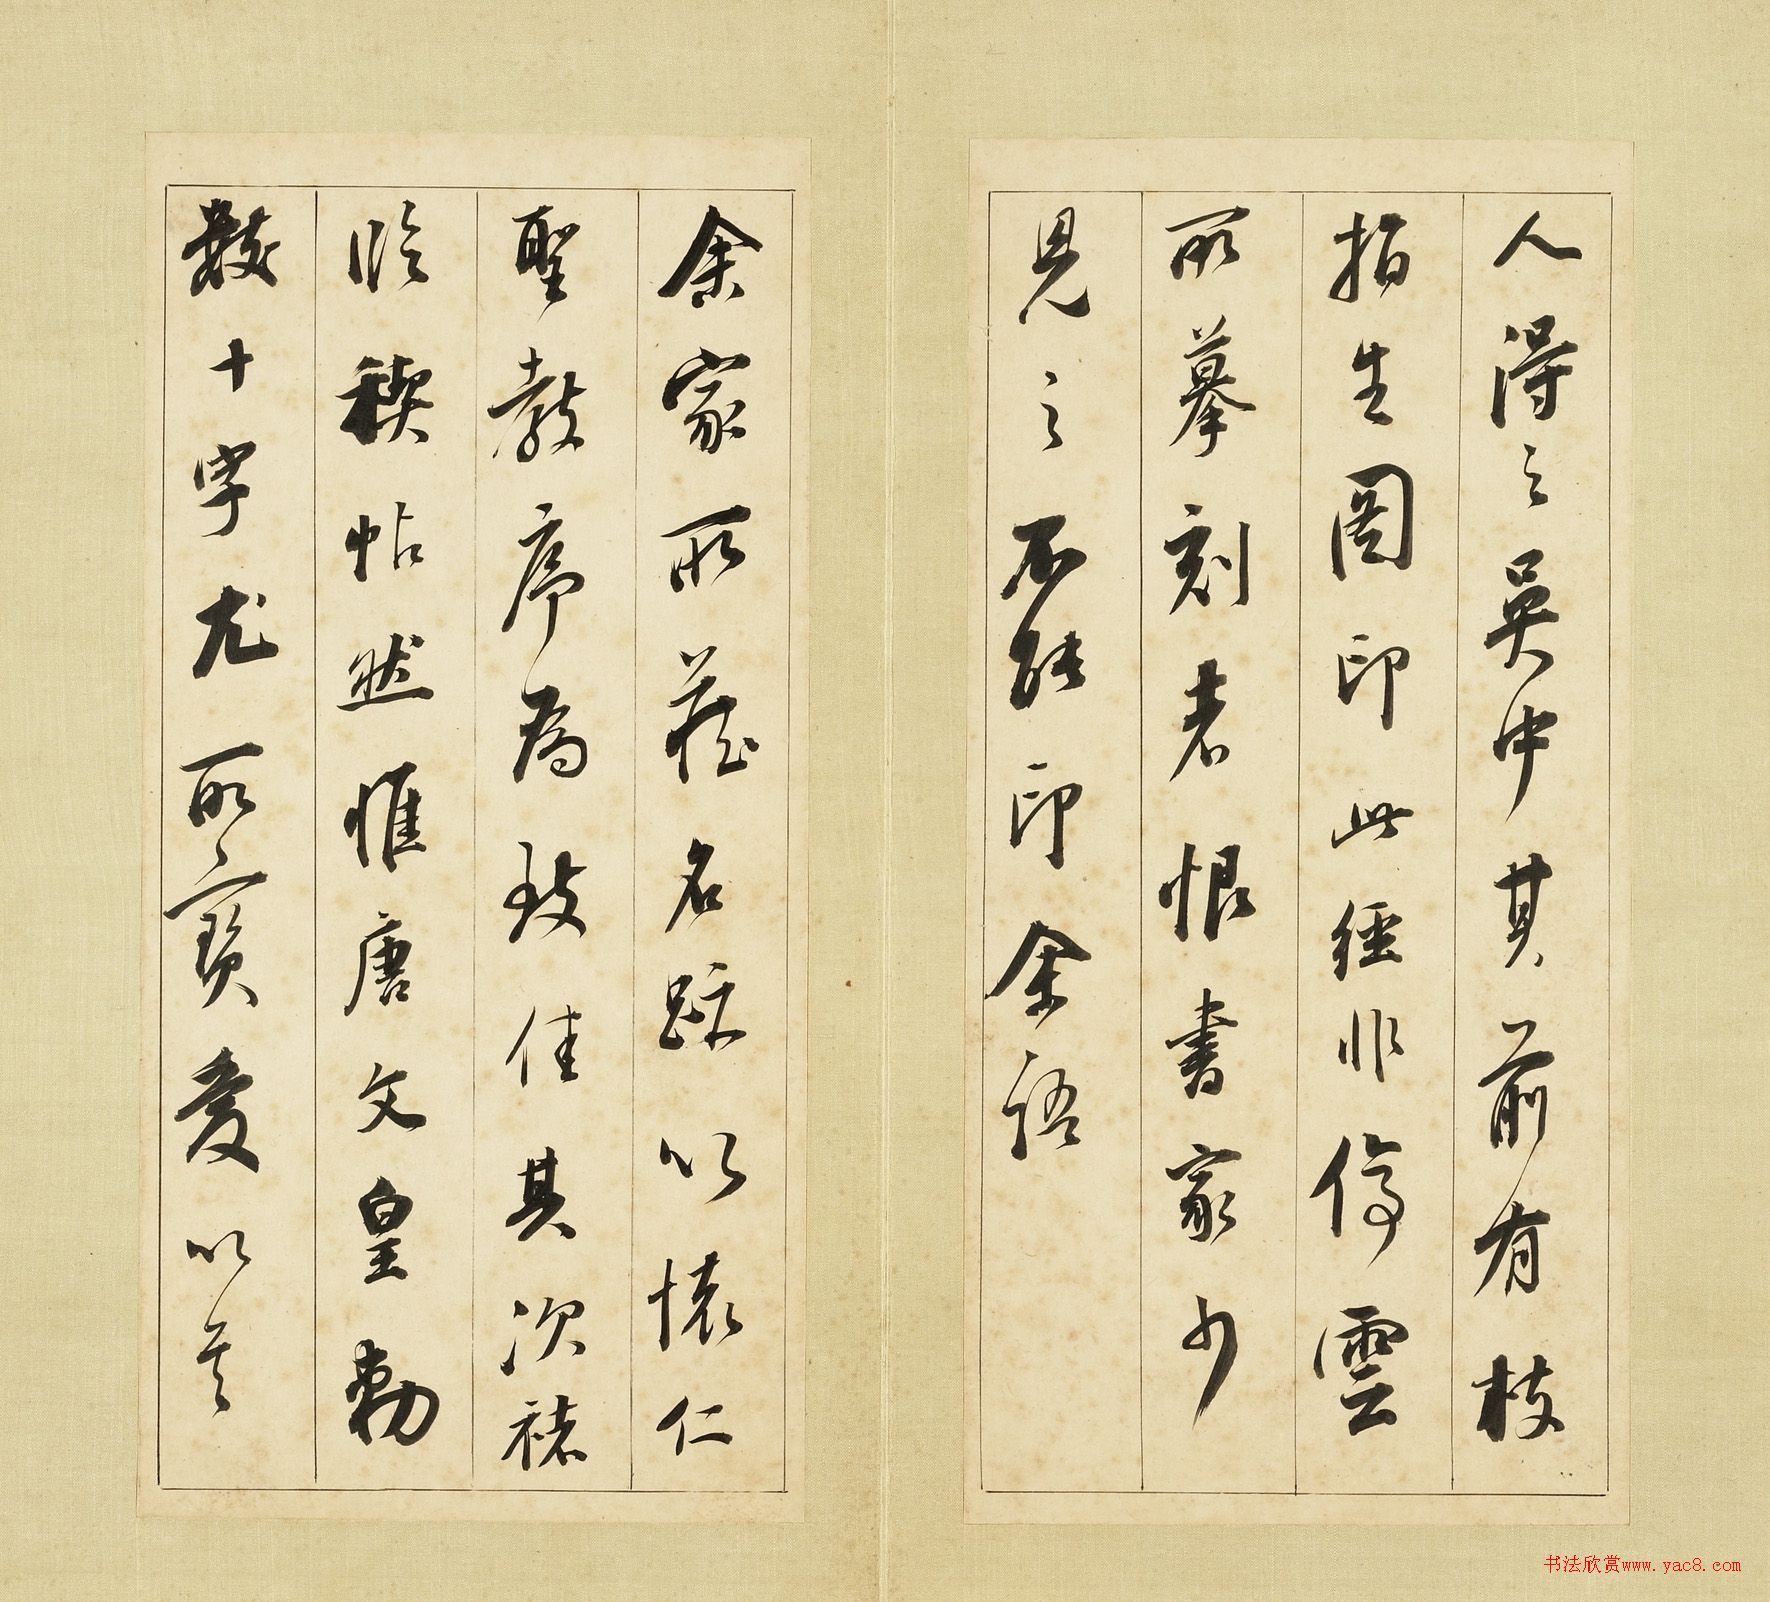 人得之吳中其前有枝
指生圖印此經非停雲
所摹刻者恨書家少
見之不能印余語
余家所藏名跡以懷仁
聖教序為致佳其次褚
臨稧帖然惟唐文皇勅
數十字尤所寶愛以其
书法欣赏www.yac8.com